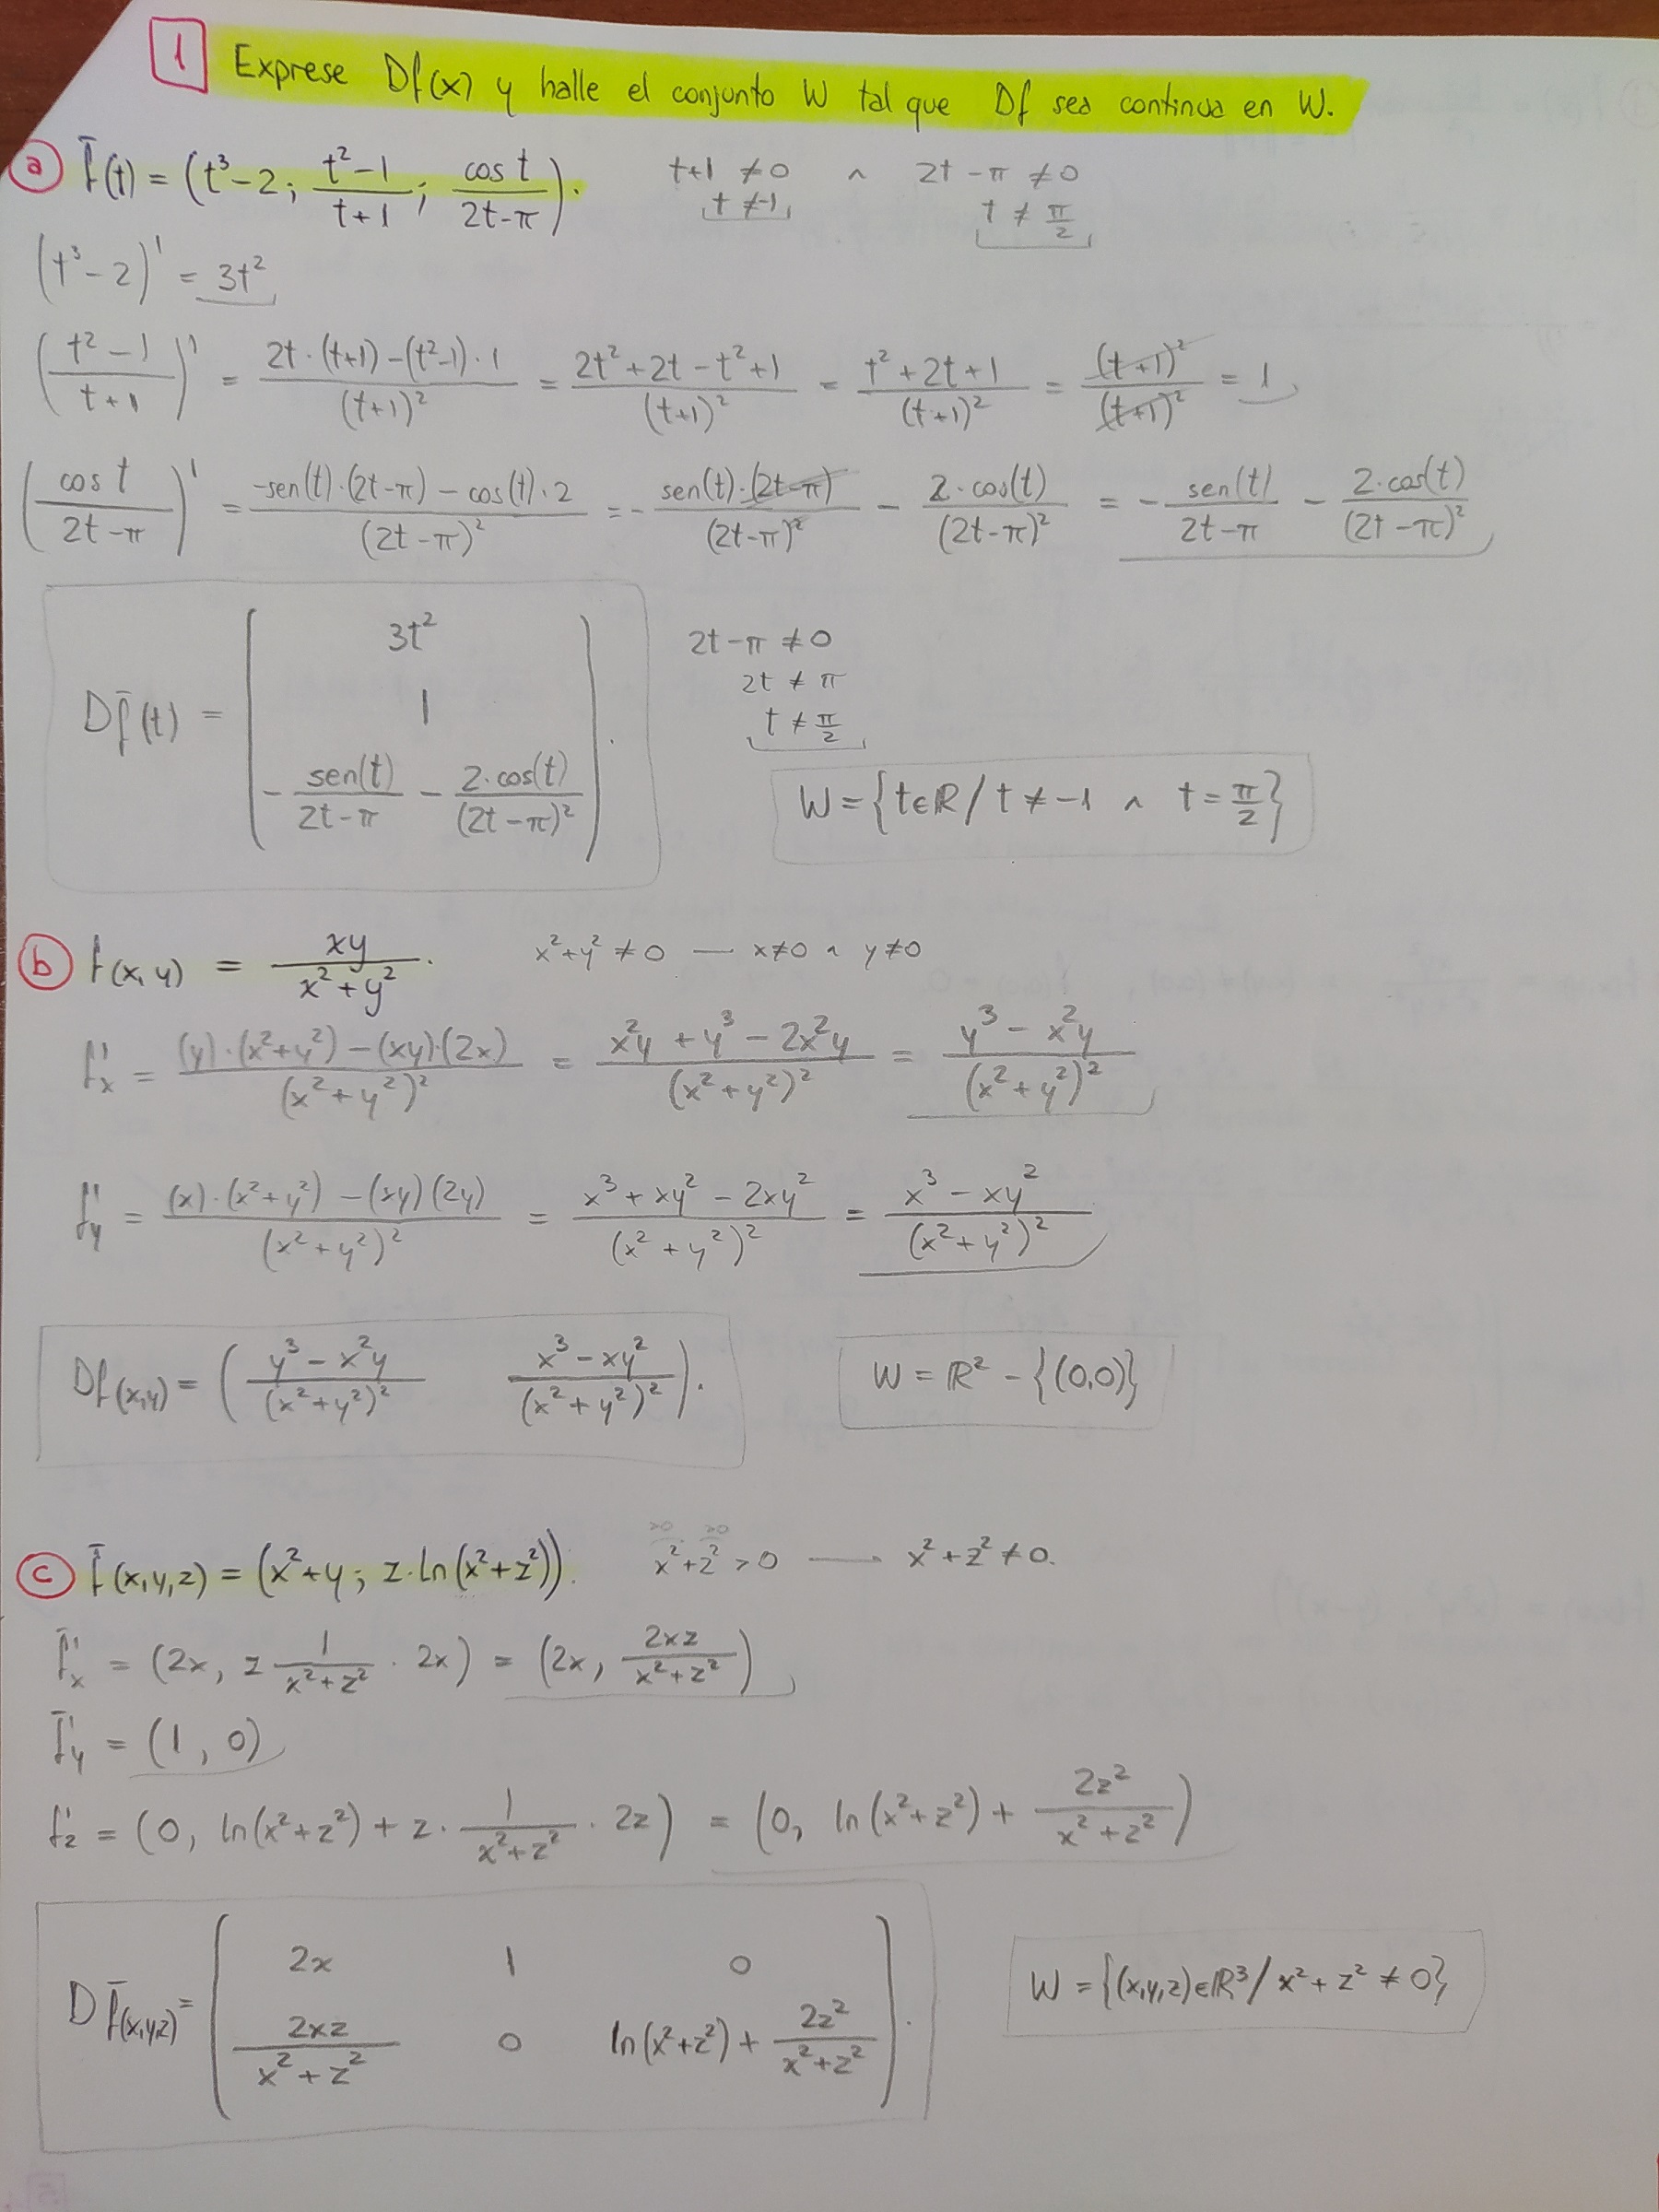 1 Exprese Df(x) y halle el conjunto W tal que Df sea continua en W.
a f̄(t) = (t³-2; (t²-1)/(t+1); (cos t)/(2t-π)). t+1 ≠ 0 ∧ 2t-π ≠ 0
t ≠ -1 t ≠ π/2
(t³-2)' = 3t²
((t²-1)/(t+1))' = (2t·(t+1)-(t²-1)·1)/(t+1)² = (2t²+2t-t²+1)/(t+1)² = (t²+2t+1)/(t+1)² = (t+1)²/(t+1)² = 1
((cos t)/(2t-π))' = (-sen(t)·(2t-π) - cos(t)·2)/(2t-π)² = - (sen(t)·(2t-π))/(2t-π)² - (2·cos(t))/(2t-π)² = - sen(t)/(2t-π) - (2·cos(t))/(2t-π)²
Df̄(t) = ( 3t²
1
- sen(t)/(2t-π) - (2·cos(t))/(2t-π)² ).
2t-π ≠ 0
2t ≠ π
t ≠ π/2
W = {t∈ℝ / t ≠ -1 ∧ t = π/2}
b f(x,y) = xy/(x²+y²). x²+y² ≠ 0 — x≠0 ∧ y≠0
f'x = ((y)·(x²+y²)-(xy)·(2x))/(x²+y²)² = (x²y + y³ - 2x²y)/(x²+y²)² = (y³ - x²y)/(x²+y²)²
f'y = ((x)·(x²+y²)-(xy)(2y))/(x²+y²)² = (x³+xy²-2xy²)/(x²+y²)² = (x³ - xy²)/(x²+y²)²
Df(x,y) = ( (y³-x²y)/(x²+y²)² (x³-xy²)/(x²+y²)² ). W = ℝ² - {(0,0)}
>0 >0
c f̄(x,y,z) = (x²+y; z·ln(x²+z²)). x²+z² > 0 — x²+z² ≠ 0.
f̄'x = (2x, z 1/(x²+z²) · 2x) = (2x, 2xz/(x²+z²))
f̄'y = (1, 0)
f'z = (0, ln(x²+z²) + z · 1/(x²+z²) · 2z) = (0, ln(x²+z²) + 2z²/(x²+z²))
Df̄(x,y,z) = ( 2x 1 0
2xz/(x²+z²) 0 ln(x²+z²) + 2z²/(x²+z²) ).
W = {(x,y,z)∈ℝ³ / x²+z² ≠ 0}